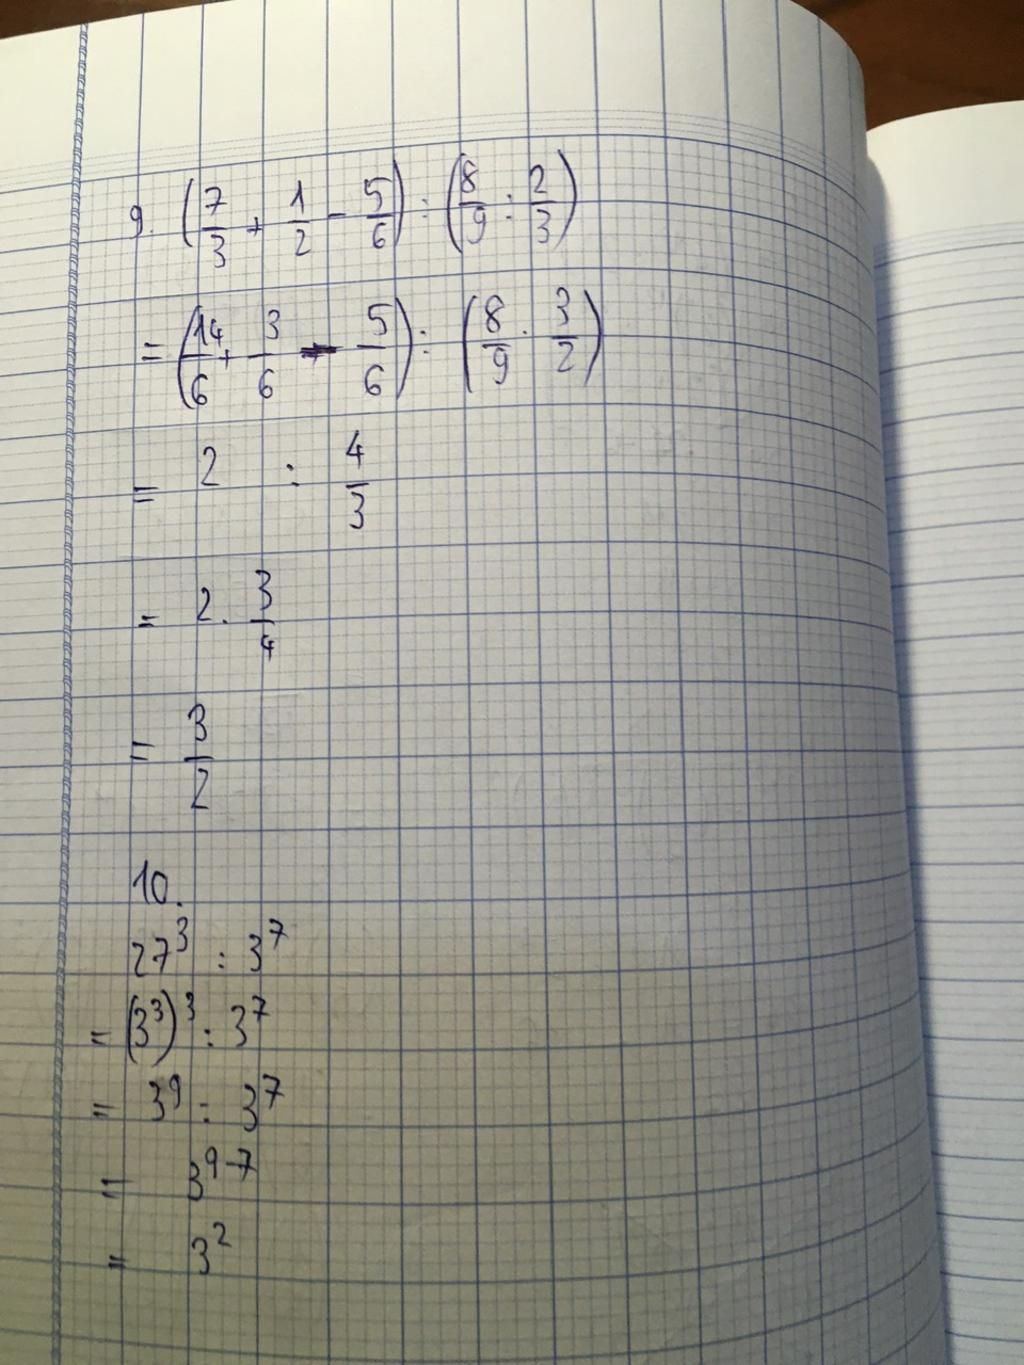 9. (7/3 + 1/2 - 5/6) : (8/9 : 2/3)
= (14/6 + 3/6 - 5/6) : (8/9 . 3/2)
= 2 : 4/3
= 2 . 3/4
= 3/2
10.
27³ : 3⁷
= (3³)³ : 3⁷
= 3⁹ : 3⁷
= 3⁹⁻⁷
= 3²